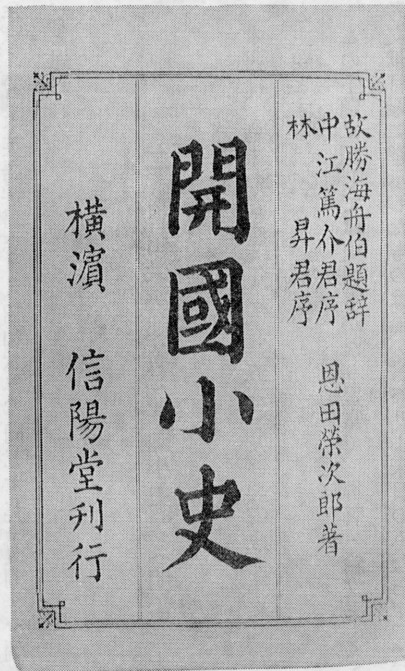 故勝海舟伯題辞
中江篤介君序
林 昇君序
恩田榮次郎著
開國小史
横濱 信陽堂刊行